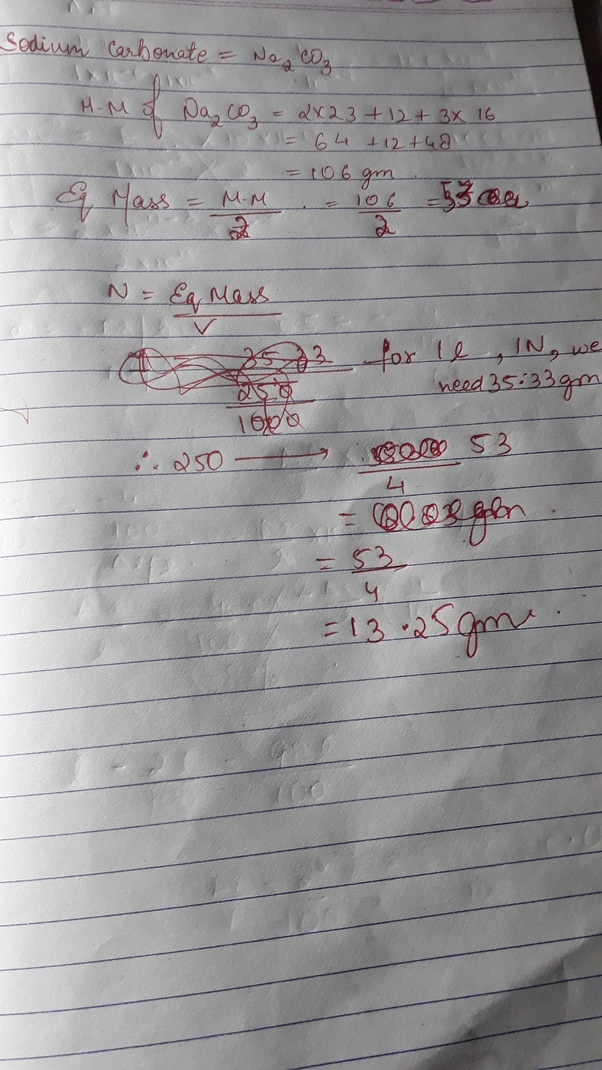 Sodium Carbonate = Na2CO3
M.M of Na2CO3 = 2x23 + 12 + 3x 16
= 64 + 12 + 48
= 106 gm
Eq Mass = M.M / 2 . = 106 / 2 = 53
N = Eq Mass / V
35.33 for 1 l , 1N, we
250 / 1000 need 35.33 gm
∴ 250 → 53 / 4
=
= 53 / 4
= 13.25 gm.